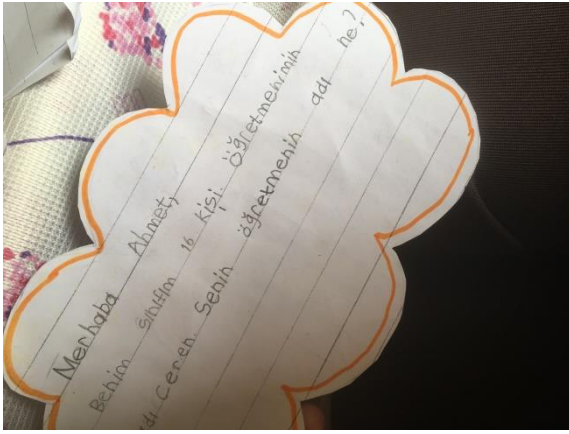 Merhaba Ahmet,
Benim sınıfım 16 kişi. Öğretmenimin
adı Ceren Senin öğretmenin adı ne?